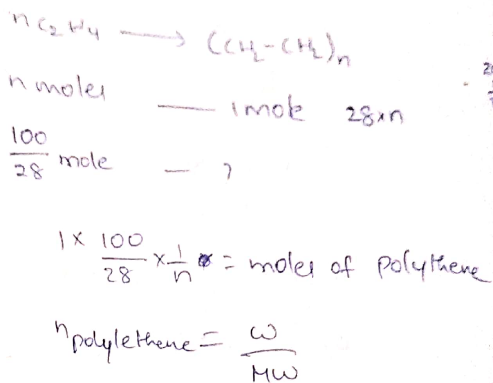 n C2H4 ⟶ (CH2-CH2)n
n moles — 1 mole 28×n
100/28 mole — ?
1 × 100/28 × 1/n = moles of polythene
n polylethene = W/MW